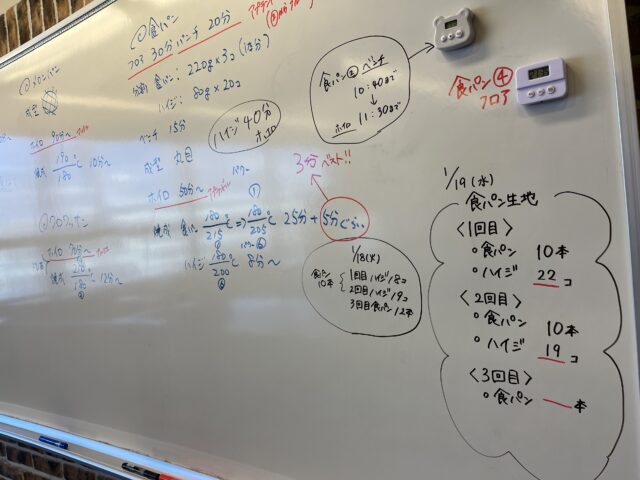 ①食パン
フロア 30分 パンチ 20分
分割 食パン: 220g×3コ(1本分)
ハイジ: 80g×20コ
ベンチ 15分
ハイジ40分
ホイロ
成型 丸目
ホイロ 50分〜
焼成 食パン 180/215℃ ⇒ 180/205℃ 25分+5分くらい
3分ベスト!!
ハイジ 180/200℃ 8分〜
②メロンパン
成型
ホイロ
焼成 190/180℃ 10分〜
ホイロ
焼成 210/180℃ 12分〜
食パン② ベンチ
10:40まで
↓
ホイロ 11:30まで
食パン④
フロア
1/18(火)
食パン
10本
1回目ハイジ18コ
2回目ハイジ19コ
3回目食パン12本
1/19(水)
食パン生地
<1回目>
・食パン 10本
・ハイジ 22コ
<2回目>
・食パン 10本
・ハイジ 19コ
<3回目>
・食パン 本